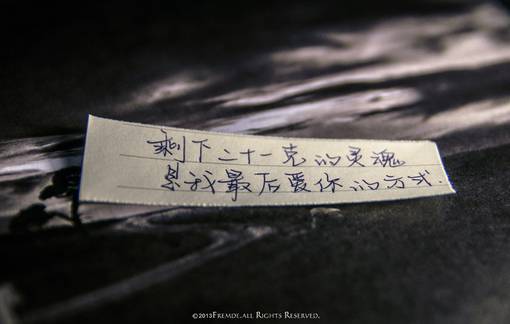 剩下二十一克的灵魂
是我最后爱你的方式.
©2013Fremde.all Rights Reserved.